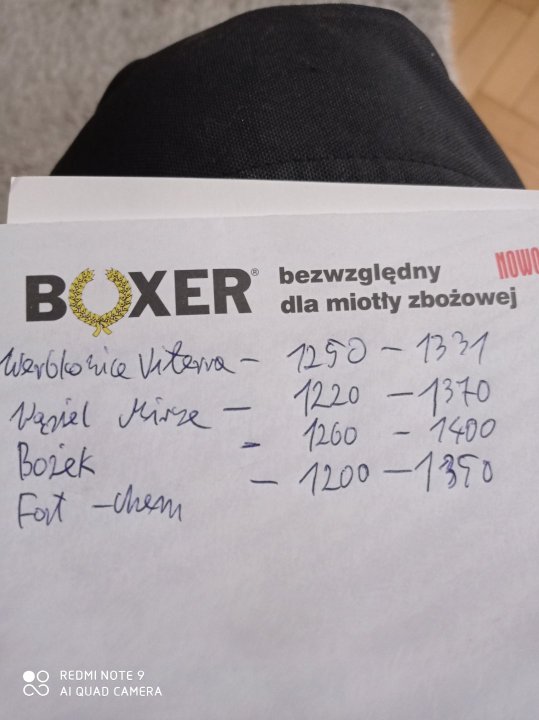 BOXER® bezwzględny NOWO
dla miotły zbożowej
Werbkowice Viterra - 1250 - 1331
Kąziel Mirze - 1220 - 1370
Bożek - 1260 - 1400
Fort - chem - 1200 - 1350
REDMI NOTE 9
AI QUAD CAMERA